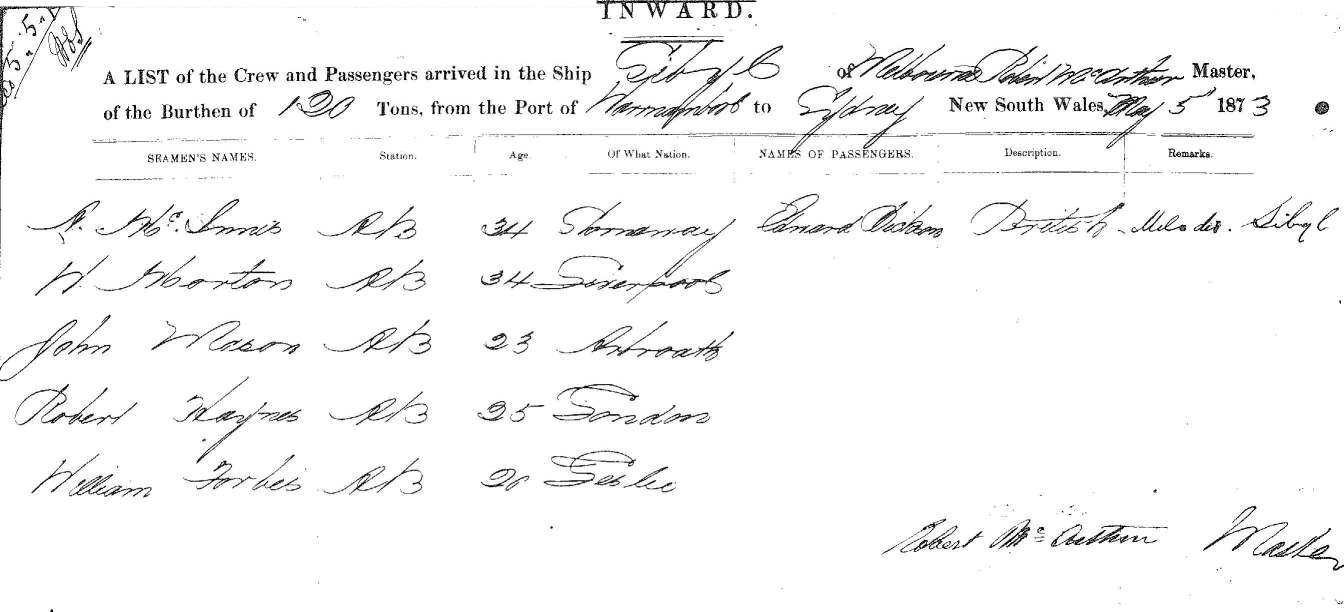 INWARD.
5.5.
A LIST of the Crew and Passengers arrived in the Ship Sibyl of Melbourne Robert McArthur Master,
of the Burthen of 120 Tons, from the Port of Warrnambool to Sydney New South Wales, May 5 1873
SEAMEN'S NAMES. Station. Age. Of What Nation. NAMES OF PASSENGERS. Description. Remarks.
Mc. Innis AB 34 Stornaway Edward Dickson British Sibyl
W Morton AB 34 Liverpool
John Mason AB 23 Arbroath
Robert Haynes AB 25 London
William Forbes AB 20 Leslie
Robert Mc Arthur Master